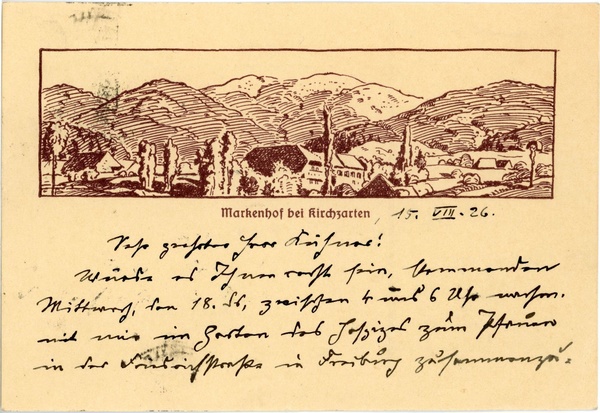 Markenhof bei Kirchzarten, 15. VIII. 26.
Sehr geehrter Herr Kühner!
Würde es Ihnen recht sein, kommenden
Mittwoch, den 18. ds, zwischen 4 und 6 Uhr nachm.
mit mir im Garten des Hospizes zum Pfauen
in der Friedrichstraße in Freiburg zusammenzu-